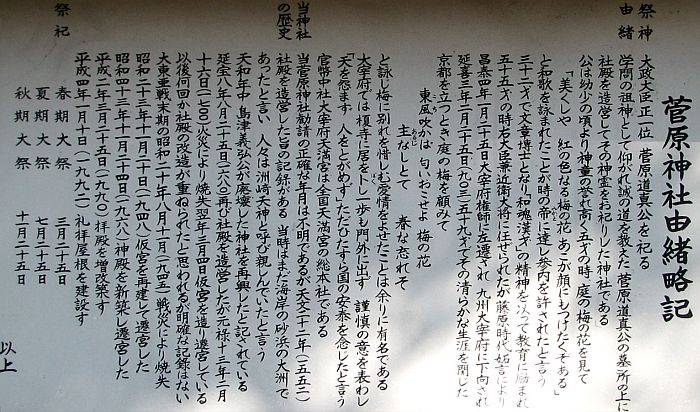 菅原神社由緒略記
祭神 大政大臣正一位 菅原道真公を祀る
由緒 学問の祖神として仰がれ誠の道を教えた 菅原道真公の墓所の上に
社殿を造営してその神霊をお祀りした神社である
公は幼少の頃より神童の誉れ高く五才の時 庭の梅の花を見て
「美くしや 紅の色なる梅の花 あこが顔にもつけたくぞある」
と和歌を詠まれたことが時の帝に達し参内を許されたと言う
三十二才で文章博士となり「和魂漢才」の精神を以って教育に励まれ
五十五才の時右大臣兼近衛大将に任せられたが藤原時代妬言により
昌泰四年一月二十五日大宰府権師に左遷され 九州大宰府に下向され
延喜三年二月二十五日(九〇三)五十九才でその清らかな生涯を閉じた
京都を立つとき庭の梅を顧みて
東風吹かば 匂いおこせよ 梅の花
主なしとて 春な忘れそ
あるじ
と詠し梅に別れを惜しむ愛情をよせたことは余りに有名である
大宰府では榎寺に居をし一歩も門外に出ず 謹慎の意を表わし
「天を怨まず 人をとがめず」ただひたすら国の安泰を念じたと言う
官幣中社大宰府天満宮は全国天満宮の総本社である
当神社の歴史 当菅原神社勧請の正確な年月は不明であるが天文二十二年(一五五二)
社殿を造営した旨の記録がある 当時はまだ海岸の砂浜の大洲で
あったと言い 人々は洲崎天神と呼び親しんでいたと言う
天和年中 島津義弘公が廃壊した神社を再興したと記されている
延宝八年八月二十五日(一六八〇)再び社殿を造営したが元禄十三年二月
十六日(一七〇〇)火災により焼失翌年三月四日仮宮を造り遷宮している
以後何回か社殿の改造が重ねられたと思われるが明確な記録はない
大東亜戦末期の昭和二十年八月十日(一九四五)戦災により焼失
昭和二十三年十一月二十日(一九四八)仮宮を再建して遷宮した
昭和四十三年十一月二十四日(一九六八)神殿を新築し遷宮した
平成二年三月二十五日(一九九〇)拝殿を増改築す
平成四年一月十日(一九九二)礼拝屋根を建設す
祭祀 春期大祭 三月二十五日
夏期大祭 七月二十五日
秋期大祭 十月二十五日
以上